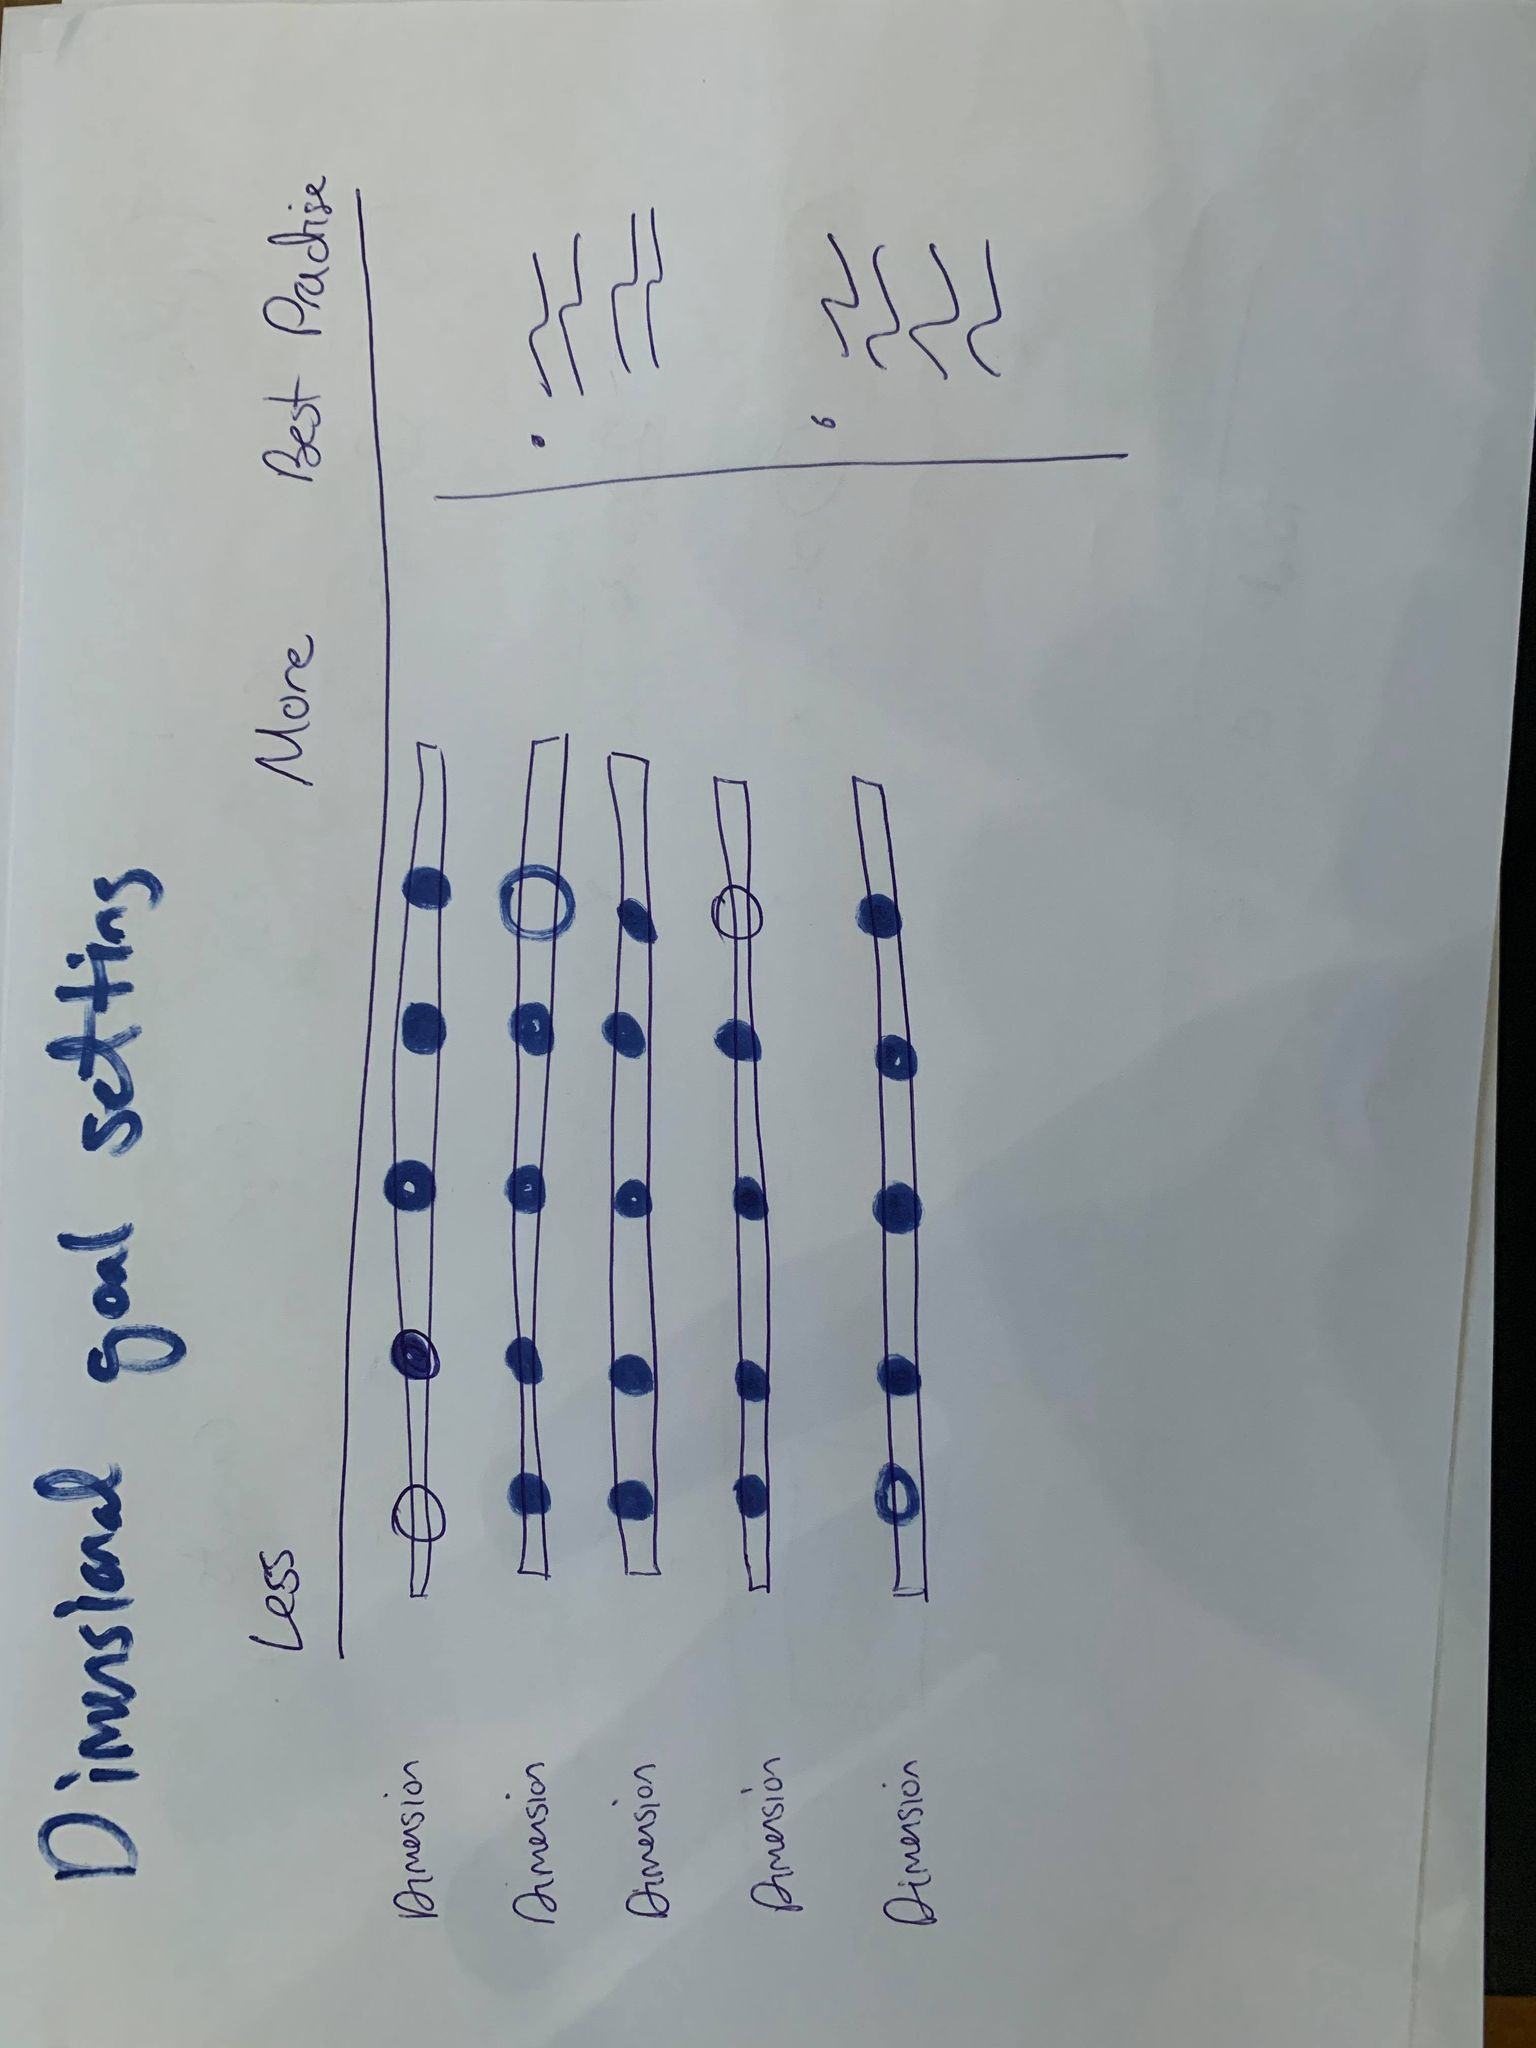 Dimensional goal setting
Less More Best Pradise
Dimension
Dimension
Dimension
Dimension
Dimension